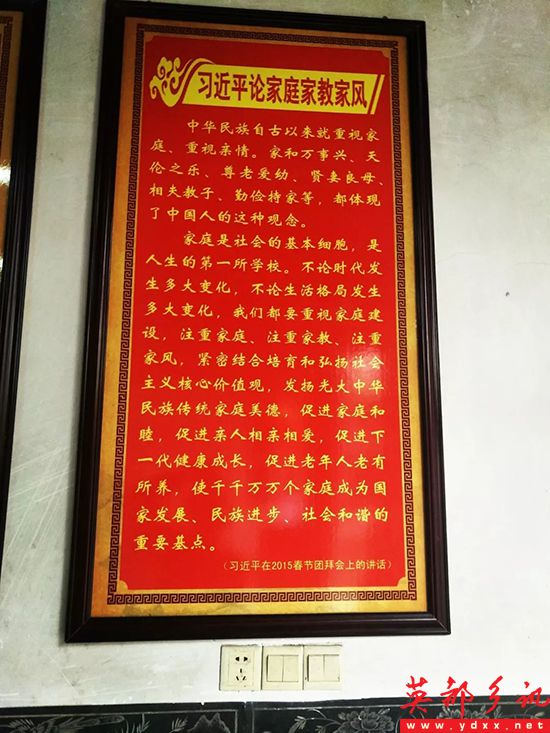 习近平论家庭家教家风
中华民族自古以来就重视家
庭、重视亲情。家和万事兴、天
伦之乐、尊老爱幼、贤妻良母、
相夫教子、勤俭持家等，都体现
了中国人的这种观念。
家庭是社会的基本细胞，是
人生的第一所学校。不论时代发
生多大变化，不论生活格局发生
多大变化，我们都要重视家庭建
设，注重家庭、注重家教、注重
家风，紧密结合培育和弘扬社会
主义核心价值观，发扬光大中华
民族传统家庭美德，促进家庭和
睦，促进亲人相亲相爱，促进下
一代健康成长，促进老年人老有
所养，使千千万万个家庭成为国
家发展、民族进步、社会和谐的
重要基点。
（习近平在2015春节团拜会上的讲话）
英都乡讯
www.ydxx.net